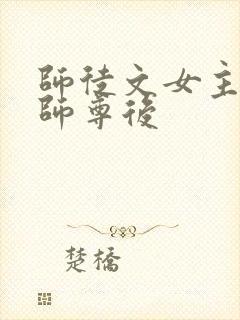 師徒文女主
師尊後
楚橋